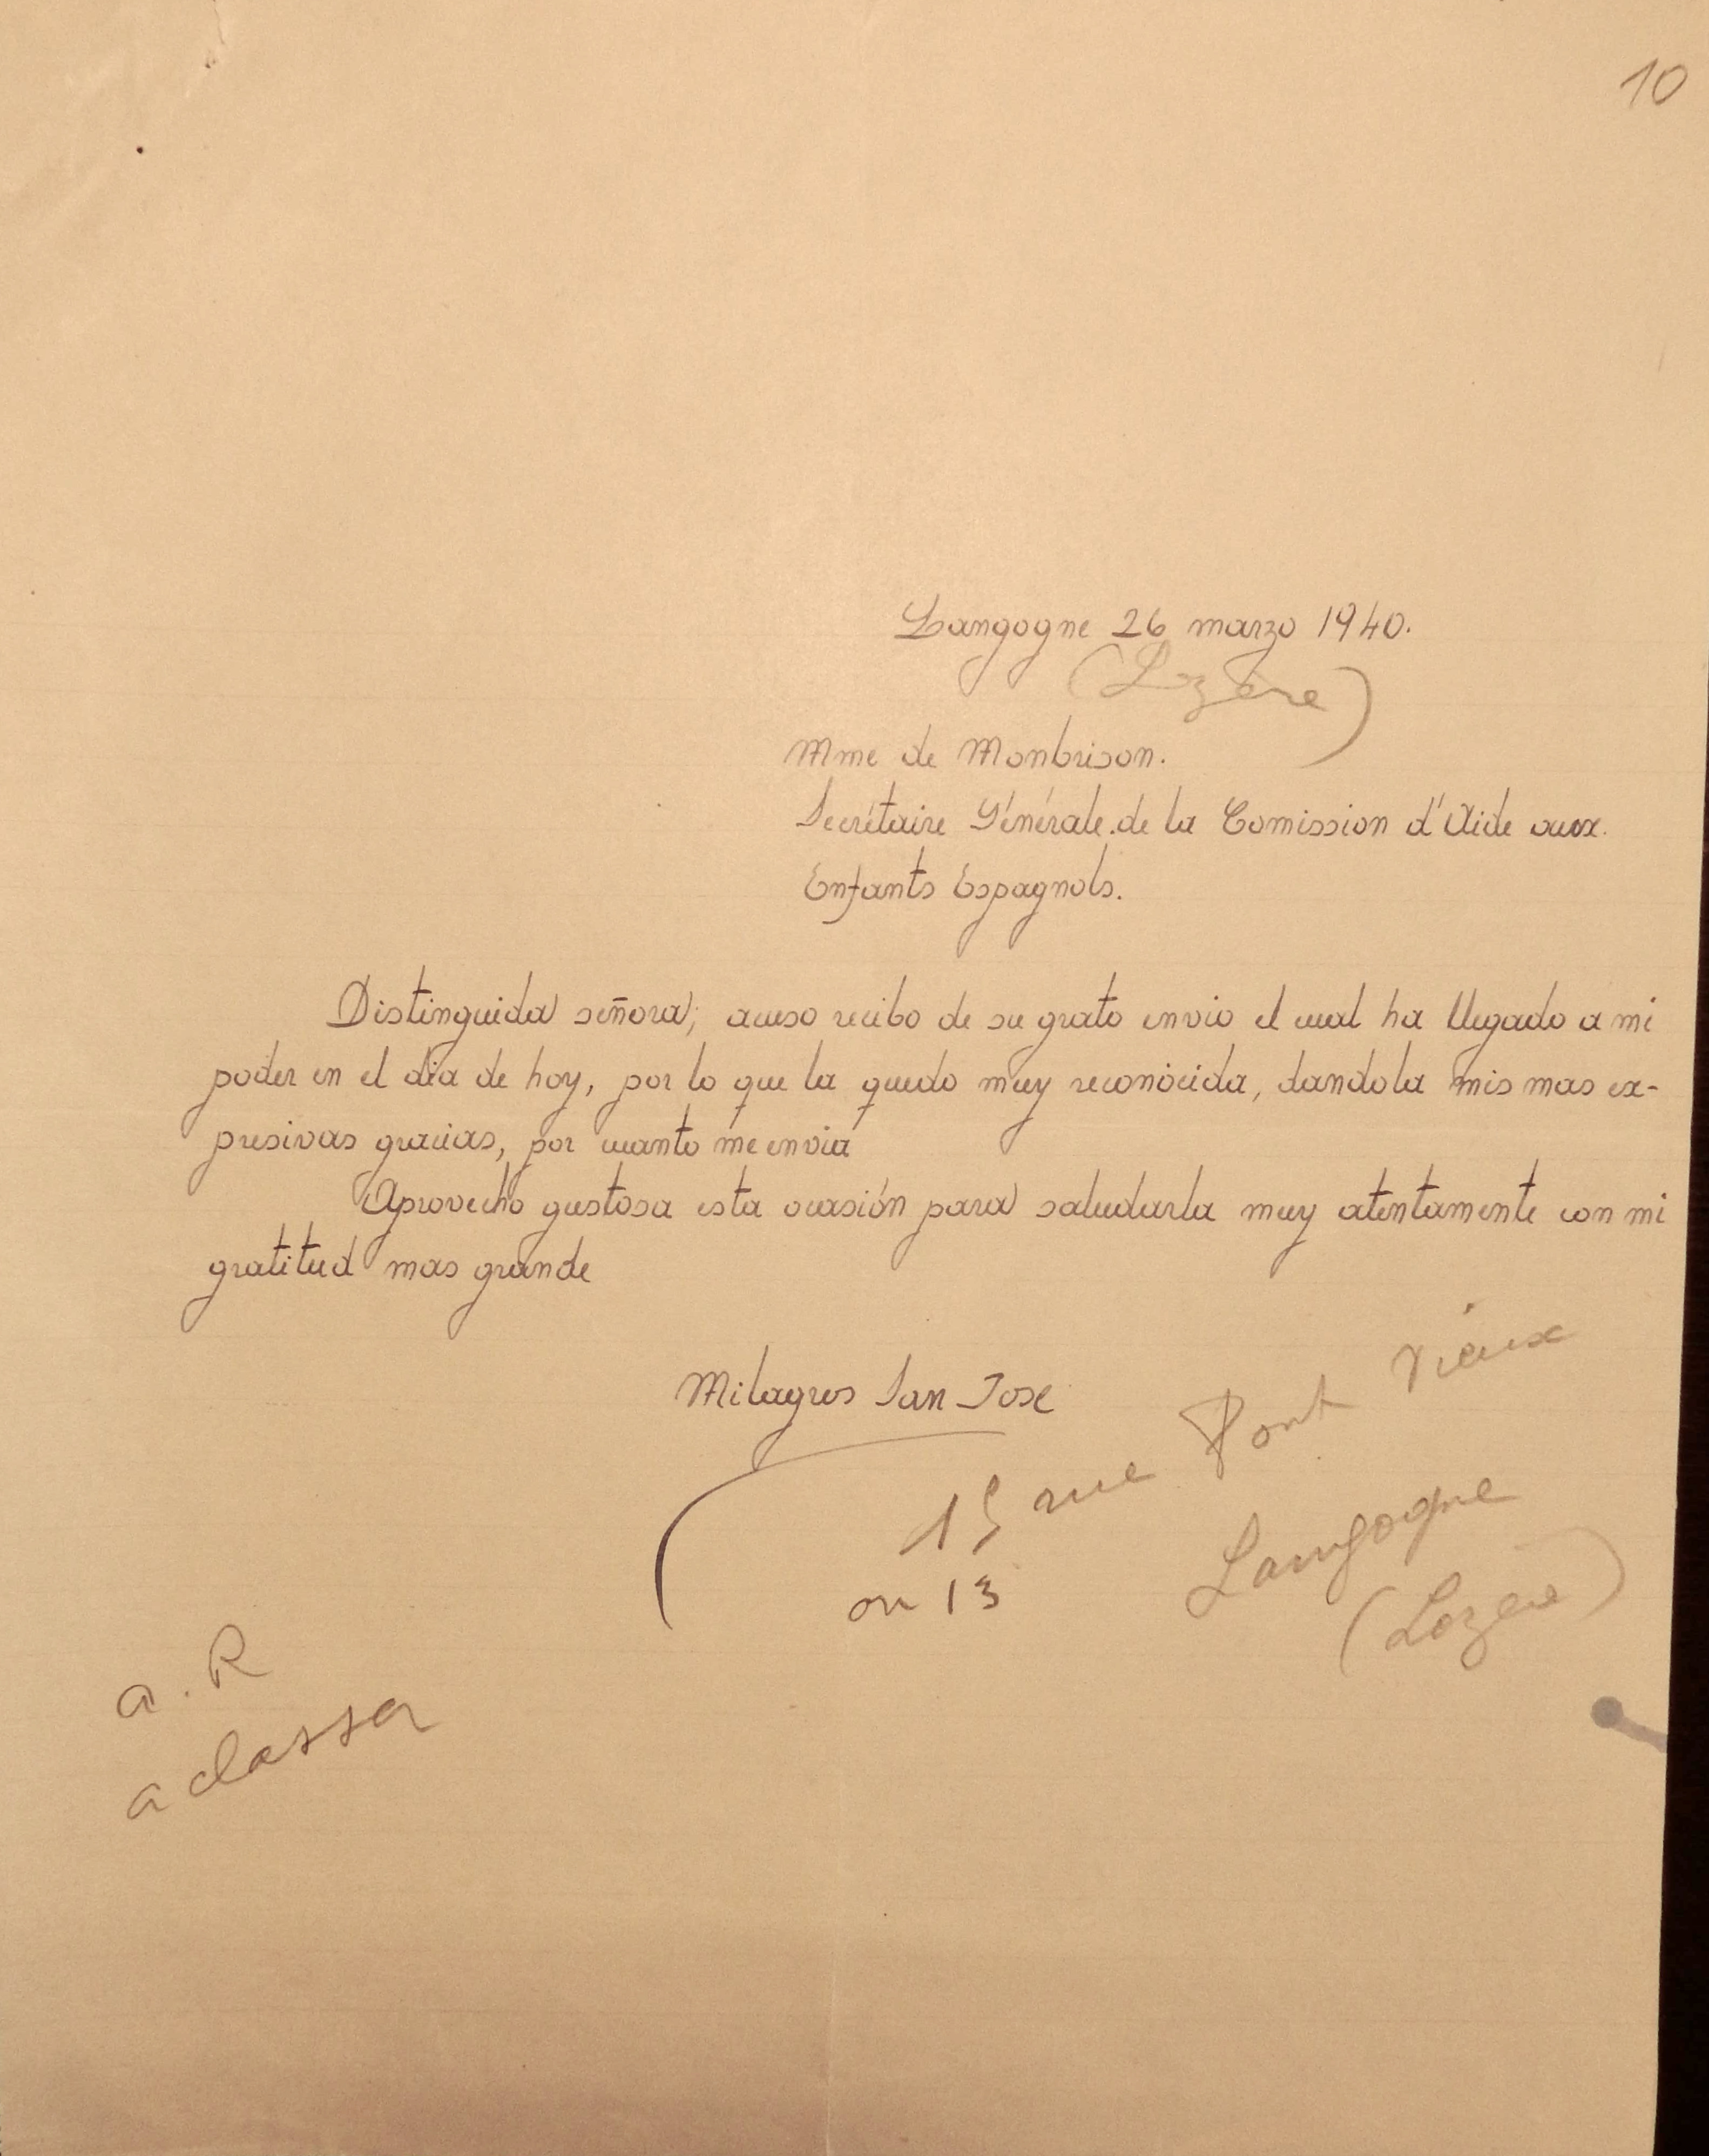 10
Langogne 26 marzo 1940.
(Lozère)
Mme de Monbrison.
Secrétaire Générale.de la Comission d'Aide aux.
Enfants Espagnols.
Distinguida señora; acuso recibo de su grato envio el cual ha llegado a mi
poder en el dia de hoy, por lo que la quedo muy reconocida, dandola mis mas ex-
presivas gracias, por cuanto me envia
Aprovecho gustosa esta ocasión para saludarla muy atentamente con mi
gratitud mas grande
Milagros San Jose
15 rue Pont Vieux
ou 13
Langogne
(Lozère)
a.R
a classer